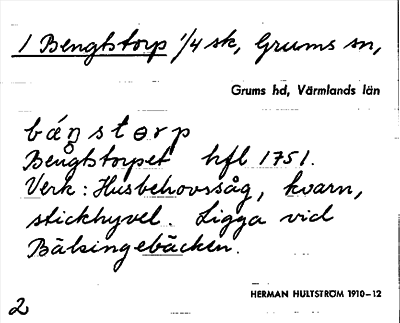 1 Bengtstorp 1/4 sk, Grums sn,
Grums hd, Värmlands län
bá̀ŋ̊stɵrp
Bengtstorpet hfl 1751.
Verk: Husbehovssåg, kvarn,
stickhyvel. Ligga vid
Bälsingebäcken.
HERMAN HULTSTRÖM 1910-12
2